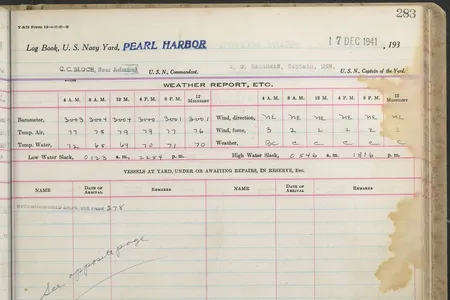 283
Log Book, U. S. Navy Yard, PEARL HARBOR 17 DEC 1941, 193
C.C. BLOCH, Rear Admiral U. S. N., Commandant. Captain, USN. U. S. N., Captain of the Yard.
WEATHER REPORT, ETC.
4 A. M. 8 A. M. 12 M. 4 P. M. 8 P. M. 12 MIDNIGHT 4 A. M. 8 A. M. 12 M. 4 P. M. 8 P. M. 12 MIDNIGHT
Barometer, 3003 3004 3004 3000 3001 3001 Wind, direction, NE NE NE NE NE NE
Temp. Air, 77 75 79 79 77 76 Wind, force, 3 2 2 2 2
Temp. Water, 72 65 69 70 71 70 Weather, BC C C C C C
Low Water Slack, 0123 a. m. 2254 p. m. High Water Slack, 0546 a. m. 1816 p. m.
VESSELS AT YARD, UNDER OR AWAITING REPAIRS, IN RESERVE, Etc.
NAME DATE OF ARRIVAL REMARKS NAME DATE OF ARRIVAL REMARKS
278
See opposite page